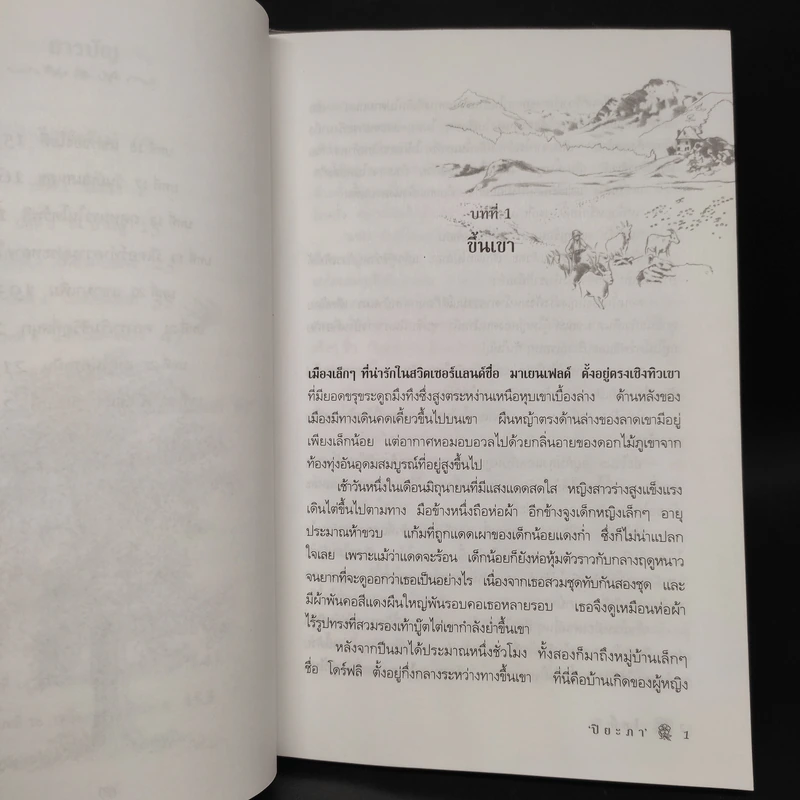 บทที่ 1
ขึ้นเขา
เมืองเล็กๆ ที่น่ารักในสวิตเซอร์แลนด์ชื่อ มาเยนเฟลด์ ตั้งอยู่ตรงเชิงทิวเขา
ที่มียอดขรุขระดูถมึงทึงซึ่งสูงตระหง่านเหนือหุบเขาเบื้องล่าง ด้านหลังของ
เมืองมีทางเดินคดเคี้ยวขึ้นไปบนเขา ผืนหญ้าตรงด้านล่างของลาดเขามีอยู่
เพียงเล็กน้อย แต่อากาศหอมอบอวลไปด้วยกลิ่นอายของดอกไม้ภูเขาจาก
ท้องทุ่งอันอุดมสมบูรณ์ที่อยู่สูงขึ้นไป
เช้าวันหนึ่งในเดือนมิถุนายนที่มีแสงแดดสดใส หญิงสาวร่างสูงแข็งแรง
เดินไต่ขึ้นไปตามทาง มือข้างหนึ่งถือห่อผ้า อีกข้างจูงเด็กหญิงเล็กๆ อายุ
ประมาณห้าขวบ แก้มที่ถูกแดดเผาของเด็กน้อยแดงก่ำ ซึ่งก็ไม่น่าแปลก
ใจเลย เพราะแม้ว่าแดดจะร้อน เด็กน้อยก็ยังห่อหุ้มตัวราวกับกลางฤดูหนาว
จนยากที่จะดูออกว่าเธอเป็นอย่างไร เนื่องจากเธอสวมชุดทับกันสองชุด และ
มีผ้าพันคอสีแดงผืนใหญ่พันรอบคอเธอหลายรอบ เธอจึงดูเหมือนห่อผ้า
ไร้รูปทรงที่สวมรองเท้าบู๊ตไต่เขากำลังย่ำขึ้นเขา
หลังจากปีนมาได้ประมาณหนึ่งชั่วโมง ทั้งสองก็มาถึงหมู่บ้านเล็กๆ
ชื่อ โดร์ฟลิ ตั้งอยู่กึ่งกลางระหว่างทางขึ้นเขา ที่นี่คือบ้านเกิดของผู้หญิง
'ปิยะภา' 1